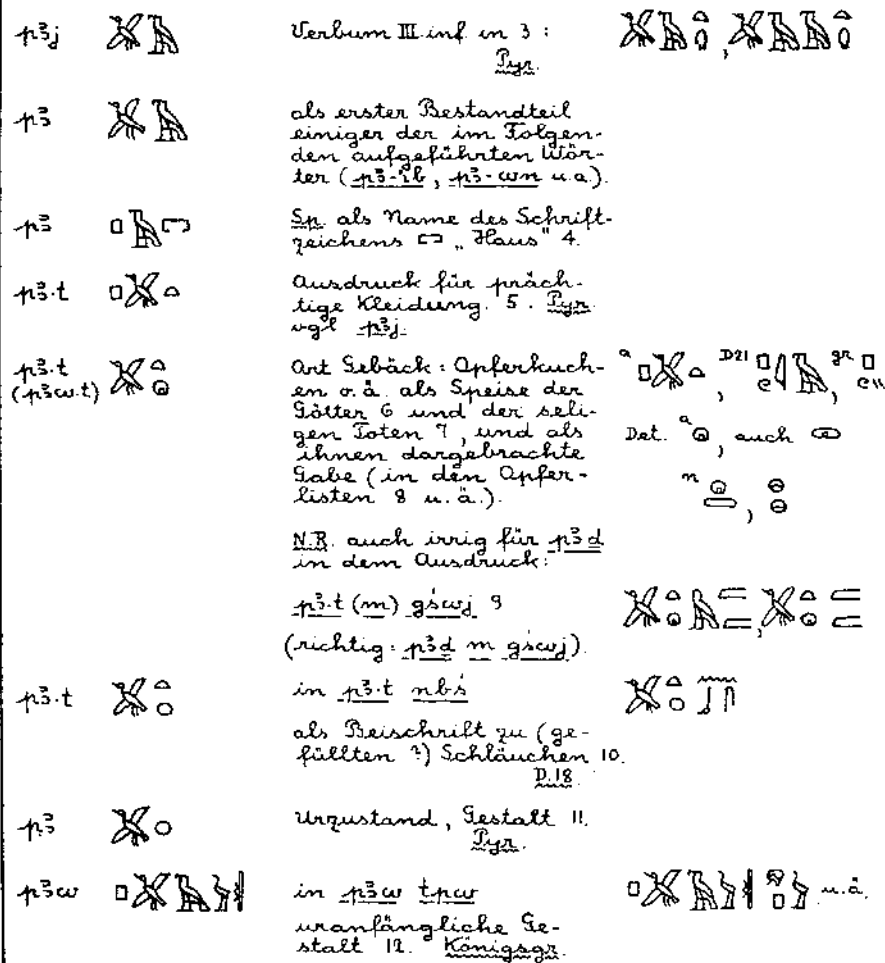 pꜣj 𓅮𓄿 Verbum III. inf. in 3 : 𓅮𓄿𓏏, 𓅮𓄿𓄿𓏏
Pyr.
pꜣ 𓅮𓄿 als erster Bestandteil
einiger der im Folgen-
den aufgeführten Wör-
ter (pꜣ-ib, pꜣ-wn u.a.).
pꜣ 𓊪𓄿𓉐 Sp. als Name des Schrift-
zeichens 𓉐 „Haus" 4.
pꜣ.t 𓊪𓅮𓏏 Ausdruck für präch-
tige Kleidung. 5. Pyr.
vgl pꜣj.
pꜣ.t 𓅮𓏏𓏖 Art Gebäck: Opferkuch- a 𓊪𓅮𓏏, D21 𓊪𓏲𓇋𓄿, gr. 𓊪𓏲𓏭
(pꜣw.t) en o. ä. als Speise der
Götter 6 und der seli-
gen Toten 7, und als Det. a 𓏖, auch
ihnen dargebrachte
Gabe (in den Opfer- n
listen 8 u. ä.).
N.R. auch irrig für pꜣd
in dem Ausdruck:
pꜣ.t (m) gśwj 9 𓅮𓏏𓏖𓅓𓐛𓐛, 𓅮𓏏𓏖𓐛𓐛
(richtig: pꜣd m gśwj).
pꜣ.t 𓅮𓏏𓏒 in pꜣ.t nbś 𓅮𓏏𓏒𓈖𓃀𓋴
als Beischrift zu (ge-
füllten?) Schläuchen 10.
D.18
pꜣ 𓅮𓏒 Urzustand, Gestalt 11.
Pyr.
pꜣw 𓊪𓅮𓄿𓅱 in pꜣw tpw 𓊪𓅮𓄿𓅱𓁶𓊪𓅱 u. ä.
uranfängliche Ge-
stalt 12. Königsgr.